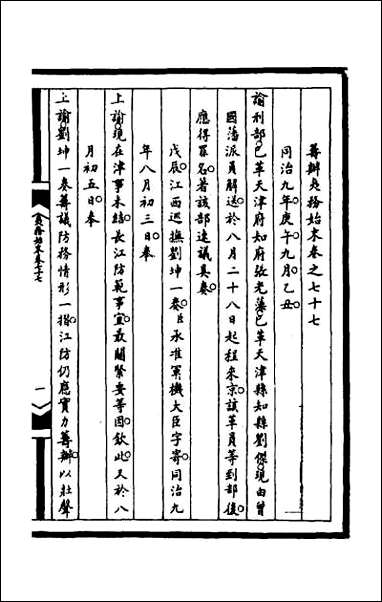 籌辦夷務始末卷之七十七
同治九年庚午九月乙丑
諭刑部已革天津府知府張光藻已革天津縣知縣劉傑現由曾
國藩派員解送於八月二十八日起程來京該革員等到部後
應得罪名著該部速議具奏
戊辰江西巡撫劉坤一奏臣承准軍機大臣字寄同治九
年八月初三日奉
上諭現在津事未結長江防範事宜最關緊要等因欽此又於八
月初五日奉
上諭劉坤一奏籌議防務情形一摺江防仍應實力籌辦以壯聲
夷務始末卷七十七
一